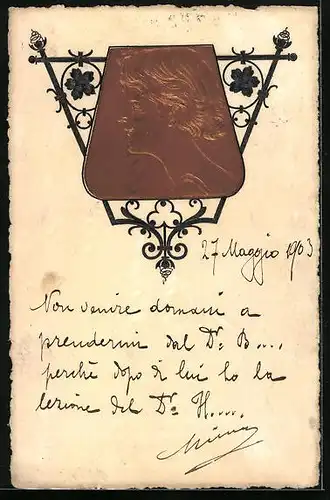 27 Maggio 1903
Non venire domani a
prendermi dal Dr. B...
perchè dopo di lui ho la
lezione del Dr. H....